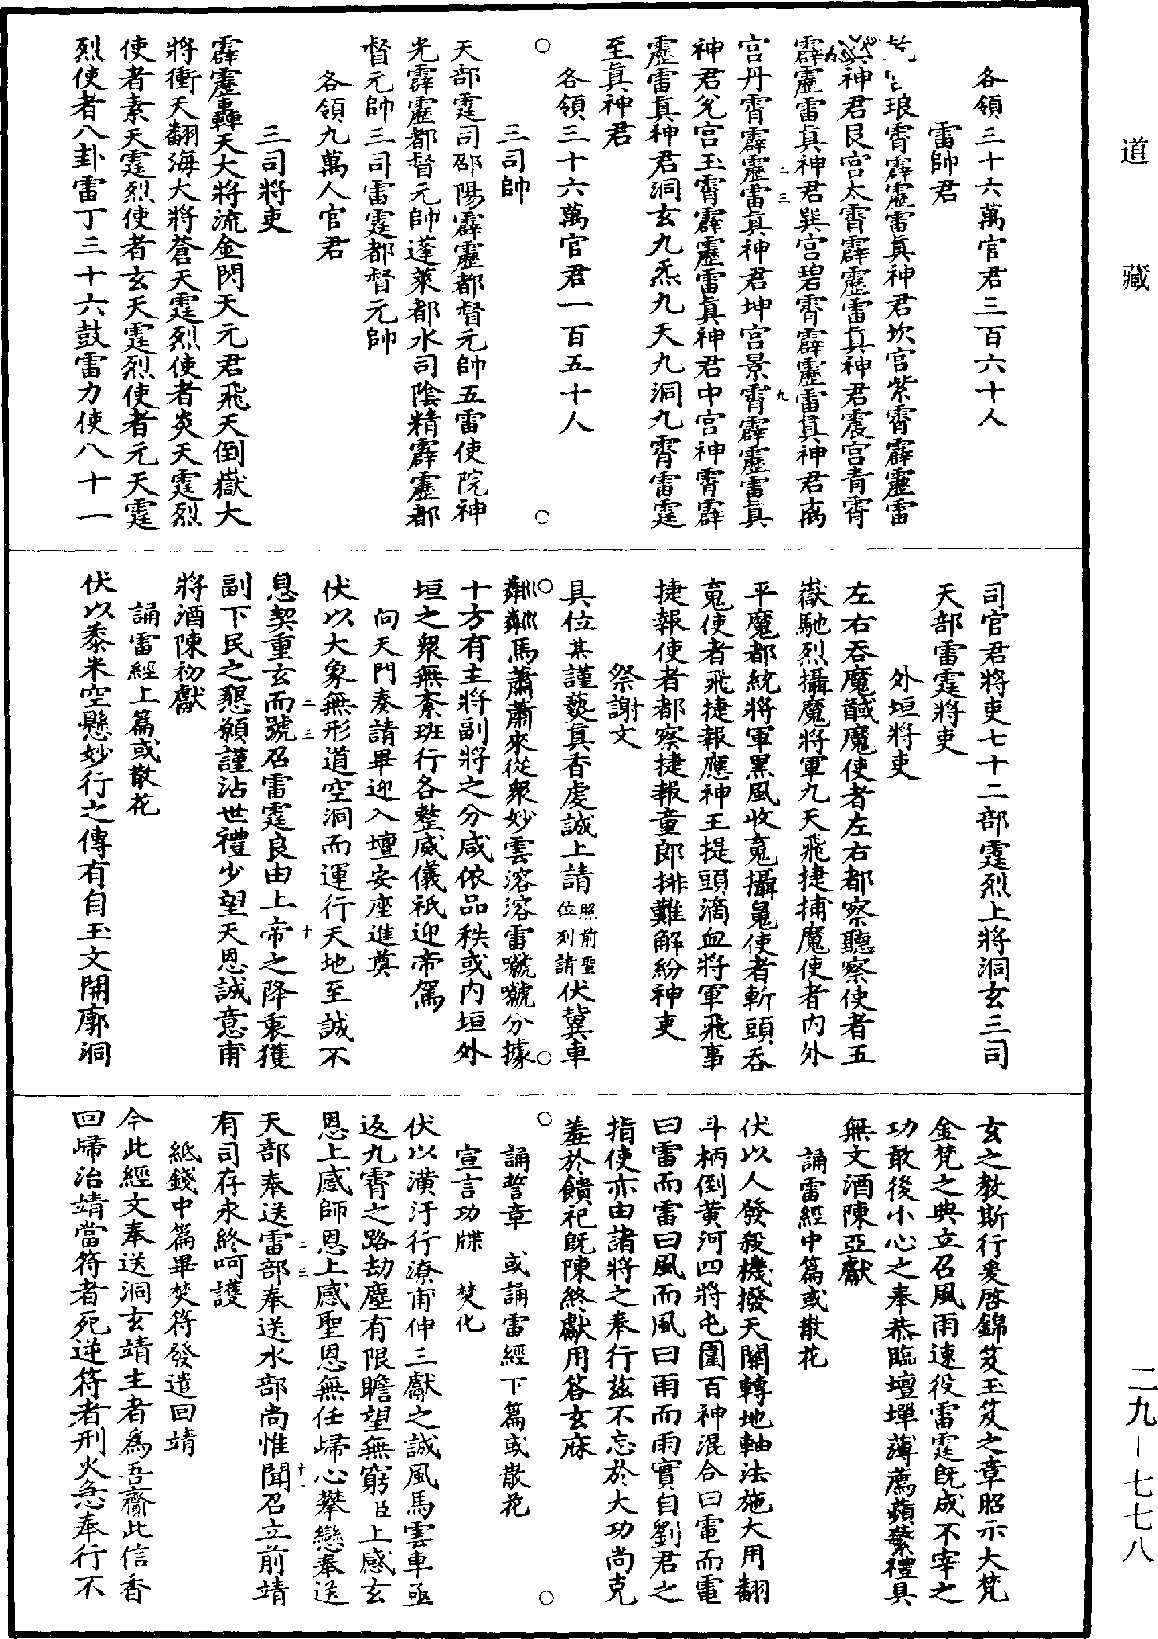 道藏
各領三十六萬官君三百六十人
雷帥君
琅霄霹靂雷真神君坎宮紫霄霹靂雷
真神君艮宮太霄霹靂雷真神君震宮青霄
霹靂雷真神君巽宮碧霄霹靂雷真神君离
二三
九
宮丹霄霹靂雷真神君坤宮景霄霹靂雷真
神君兌宮玉霄霹靂雷真神君中宮神霄霹
靂雷真神君洞玄九炁九天九洞九霄雷霆
至真神君
各領三十六萬官君一百五十人
○
○
三司帥
天部霆司邵陽霹靂都督元帥五雷使院神
光霹靂都督元帥蓬萊都水司陰精霹靂都
督元帥三司雷霆都督元帥
各領九萬人官君
三司將吏
霹靂轟天大將流金閃天元君飛天倒嶽大
將衝天翻海大將蒼天霆烈使者炎天霆烈
使者素天霆烈使者玄天霆烈使者元天霆
烈使者八卦雷丁三十六鼓雷力使八十一
司官君將吏七十二部霆烈上將洞玄三司
天部雷霆將吏
外垣將吏
左右吞魔馘魔使者左右都察聽察使者五
嶽馳烈攝魔將軍九天飛捷捕魔使者內外
平魔都統將軍黑風收䰟攝䰟使者斬頭吞
䰟使者飛捷報應神王提頭滴血將軍飛事
捷報使者都察捷報童郎排難解紛神吏
祭謝文
具位某謹爇真香虔誠上請照前聖位列請伏冀車
○
○
轔轔馬蕭蕭來從衆妙雲溶溶雷虩虩分據
十方有主將副將之分咸依品秩或內垣外
垣之衆無紊班行各整威儀祇迎帝駕
向天門奏請畢迎入壇安座進奠
伏以大象無形道空洞而運行天地至誠不
二三
十
息契重玄而號召雷霆良由上帝之降衷獲
副下民之懇願謹沾世禮少望天恩誠意甫
將酒陳初獻
誦雷經上篇或散花
伏以黍米空懸妙行之傳有自玉文開廓洞
玄之教斯行爰啓錦笈玉笈之章昭示大梵
金梵之典立召風雨速役雷霆旣成不宰之
功敢後小心之奉恭臨壇墠薄薦蘋蘩禮具
無文酒陳亞獻
誦雷經中篇或散花
伏以人發殺機撥天關轉地軸法施大用翻
斗柄倒黃河四將屯圍百神混合曰電而電
曰雷而雷曰風而風曰雨而雨實自劉君之
指使亦由諸將之奉行茲不忘於大功尚克
羞於饋祀旣陳終獻用答玄庥
○
○
誦誓章　或誦雷經下篇或散花
宣言功牒　焚化
伏以潢汙行潦甫伸三獻之誠風馬雲車亟
返九霄之路劫塵有限瞻望無窮臣上感玄
恩上感師恩上感聖恩無任歸心攀戀奉送
二三
十一
天部奉送雷部奉送水部尚惟聞召立前靖
有司存永終呵護
紙錢中篇畢焚符發遣回靖
今此經文奉送洞玄靖主者爲吾齎此信香
回歸治靖當符者死逆符者刑火急奉行不
二九—七七八